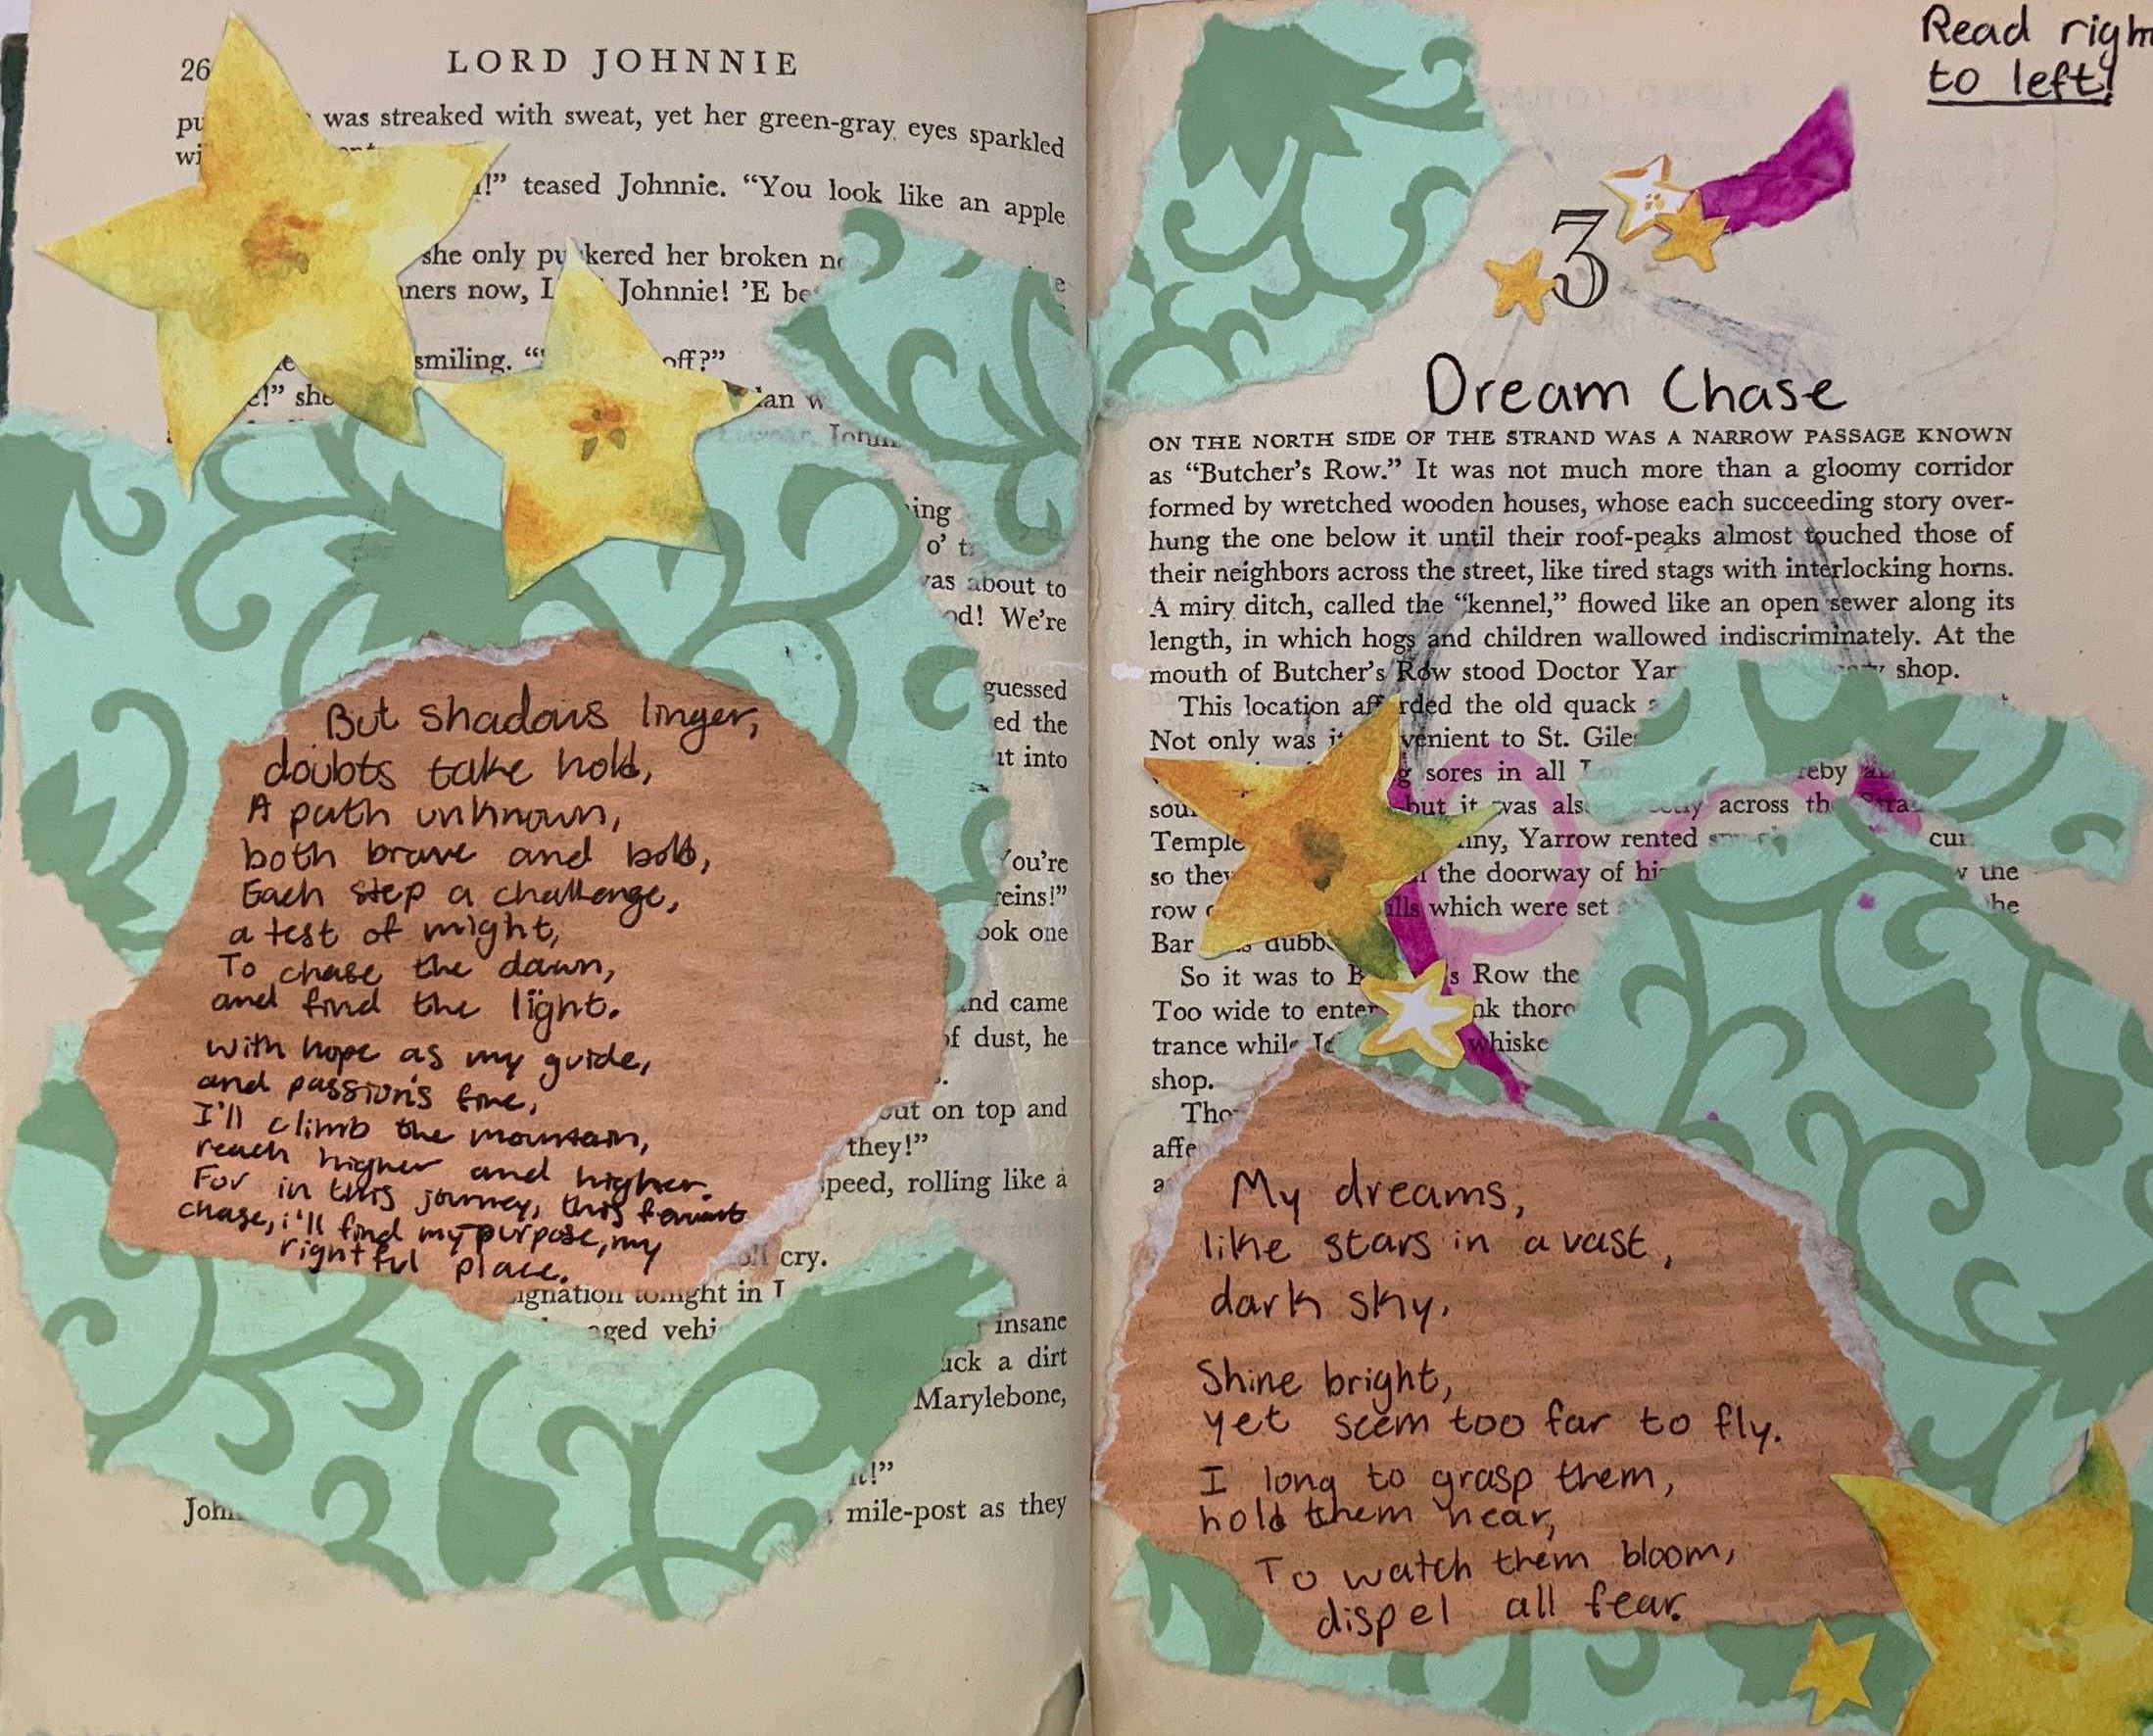 26
LORD JOHNNIE
was streaked with sweat, yet her green-gray eyes sparkled
teased Johnnie. “You look like an apple
she only puckered her broken
now, Johnnie! ’E
smiling. off?”
she
ing
o’
was about to
We’re
guessed
ed the
into
You’re
reins!”
ook one
and came
of dust, he
out on top and
they!”
speed, rolling like a
cry.
tonight in
insane
a dirt
Marylebone,
mile-post as they
But shadows linger,
doubts take hold,
A path unknown,
both brave and bold,
Each step a challenge,
a test of might,
To chase the dawn,
and find the light.
with hope as my guide,
and passion's fire,
I'll climb the mountain,
reach higher and higher.
For in this journey, this
chase, i'll find my purpose, my
rightful place.
Read right
to left!
3
Dream Chase
ON THE NORTH SIDE OF THE STRAND WAS A NARROW PASSAGE KNOWN
as “Butcher’s Row.” It was not much more than a gloomy corridor
formed by wretched wooden houses, whose each succeeding story over-
hung the one below it until their roof-peaks almost touched those of
their neighbors across the street, like tired stags with interlocking horns.
A miry ditch, called the “kennel,” flowed like an open sewer along its
length, in which hogs and children wallowed indiscriminately. At the
mouth of Butcher’s Row stood Doctor Yar shop.
This location afforded the old quack
Not only was it convenient to St. Giles
sores in all
but it was also across the Strand
Temple Yarrow rented
so they the doorway of his
row which were set
Bar was
So it was to Row the
Too wide to enter
trance while whiske
shop.
Tho
affe
My dreams,
like stars in a vast,
dark sky.
Shine bright,
yet seem too far to fly.
I long to grasp them,
hold them near,
To watch them bloom,
dispel all fear.